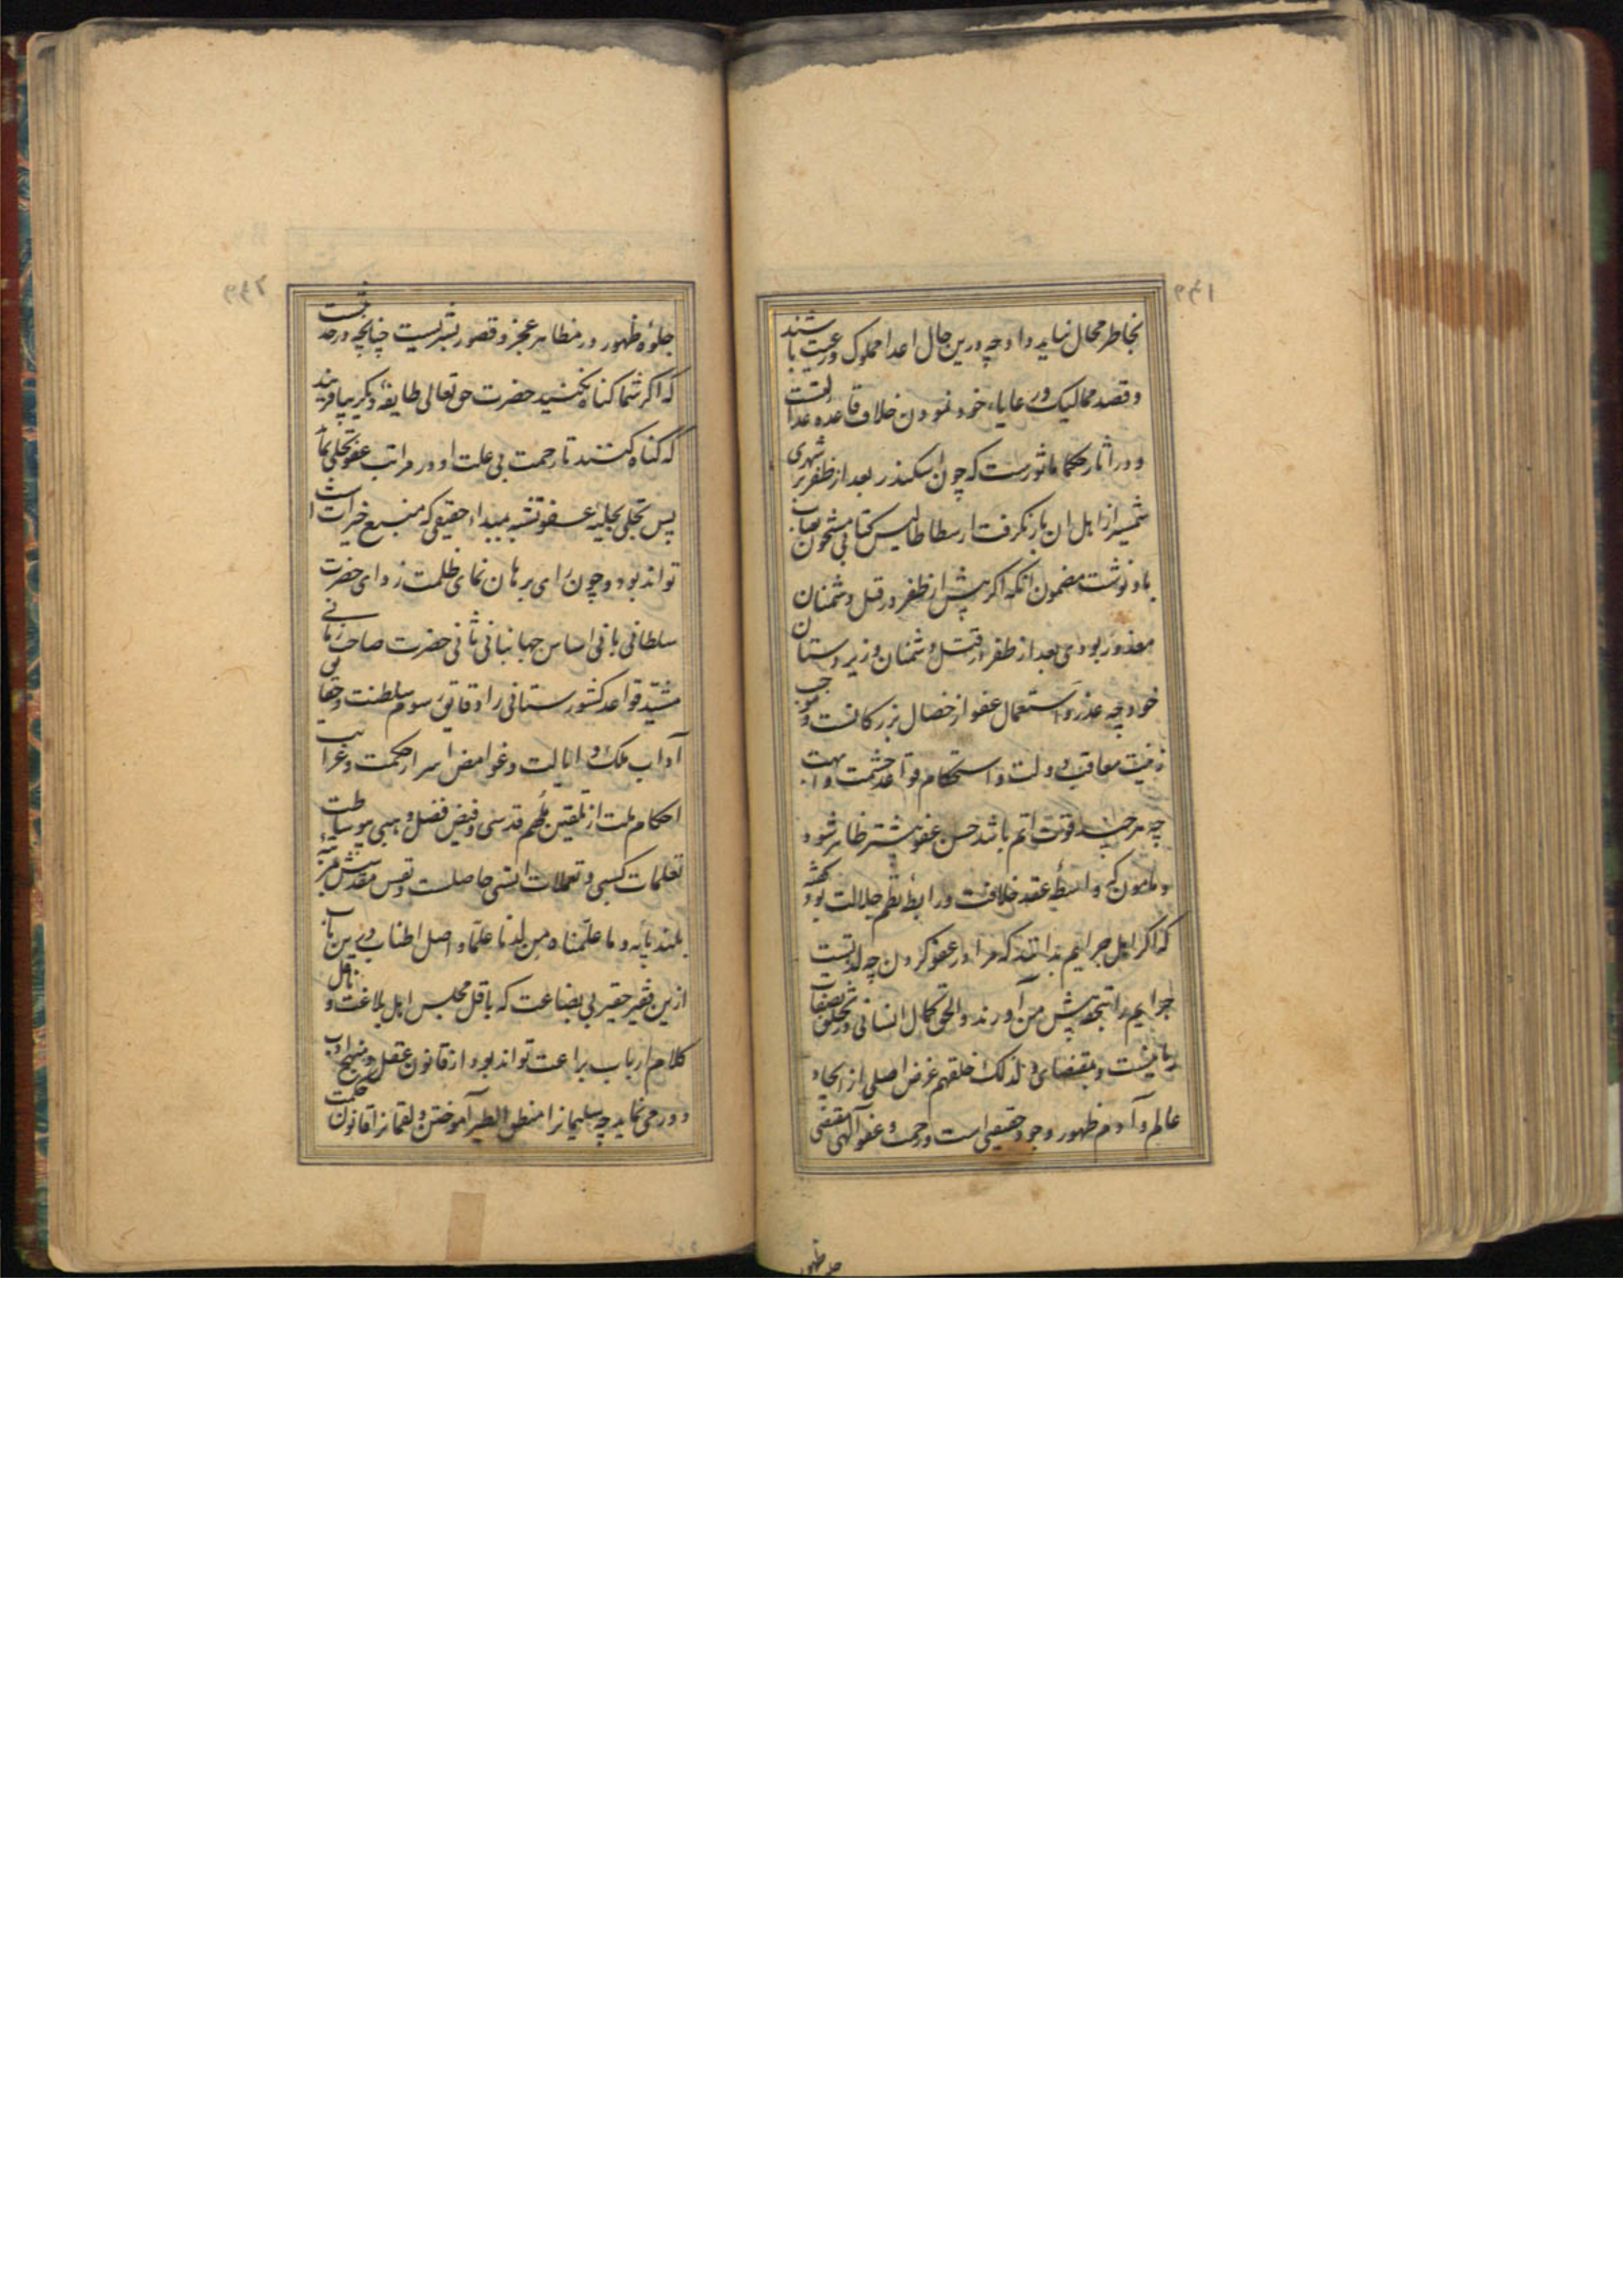 بخاطر مجال نباید داد چه درین حال اعدا مملوک و رعیت باشند
و قصد ممالیک و رعایاء خود نمودن خلاف قاعده عدالتست
و در آثار حکما ماثورست که چون اسکندر بعد از ظفر بر شهری
شمشیر از اهل ان باز نگرفت ارسطاطالیس کتابی مشحون بعتاب
باو نوشت مضمون انکه اگر پیش از ظفر در قتل دشمنان
معذور بودی بعد از ظفر در قتل دشمنان و زیردستان
خود چه عذر و استعمال عفو از خصال بزرگانست و موجب
معاقد دولت و استحکام قواعد حشمت و ابهت
چه هر چند قوت اتم باشد حسن عفو بیشتر ظاهر شود
و مامون که واسطهٔ عقد خلافت و رابطهٔ نظم جلالت بود گفته
که اگر اهل جرایم بدانند که مرا در عفو کردن چه لذتست
جرایم را بتحفه پیش من آورند و الحق کمال انسانی در تخلق بصفات
ربانیست و بمقتضای و لذلک خلقهم غرض اصلی از ایجاد
عالم و آدم ظهور وجود حقیقی است و رحمت و عفو آلهی مقتضی
جلوهٔ ظهور در مظاهر عجز و قصور بشریست چنانچه در حدیثست
که اگر شما گناه نکنید حضرت حق تعالی طایفهٔ دیگر بیافریند
که گناه کنند تا رحمت بی علت او در مراتب عفو تجلی نماید
پس تجلی بحلیهٔ عفو تشبه بمبداء حقیقی که منبع خیراتست
تواند بود و چون رای برهان نمای ظلمت زدای حضرت
سلطانی بانی اساس جهانبانی ثانی حضرت صاحب زمانی
مشید قواعد کشورستانی را دقایق رسوم سلطنت و حقایق
آداب ملک و ایالت و غوامض اسرار حکمت و غرایب
احکام ملت از تلقین ملهم قدسی و فیض فضل وهبی بی وساطت
تعلمات کسبی و تعملات انسی حاصلست و نفس مقدسش مرتبهٔ
بلند پایه و ما علمناه من لدنا علما و اصل اطناب درین باب
ازین فقیر حقیر بی بضاعت که باقل مجلس اهل بلاغت و ناقل
کلام ارباب براعت تواند بود از قانون عقل و منهج ادب
دور می نماید چه سلیمانرا منطق الطیر آموختن و لقمانرا قانون حکمت
جلوه ظهور